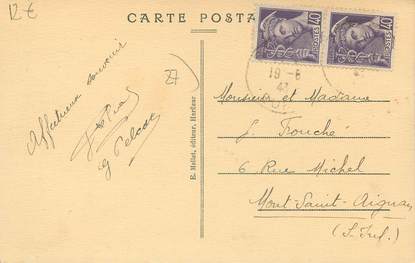 12 €
CARTE POSTA
40
POSTES
40
POSTES
19-8
43
27
Affectueux souvenir
E. Mellet, éditeur, Harfleur
Monsieur et Madame
J. Fouché
6 Rue Michel
Mont-Saint-Aignan
(S. Inf.)